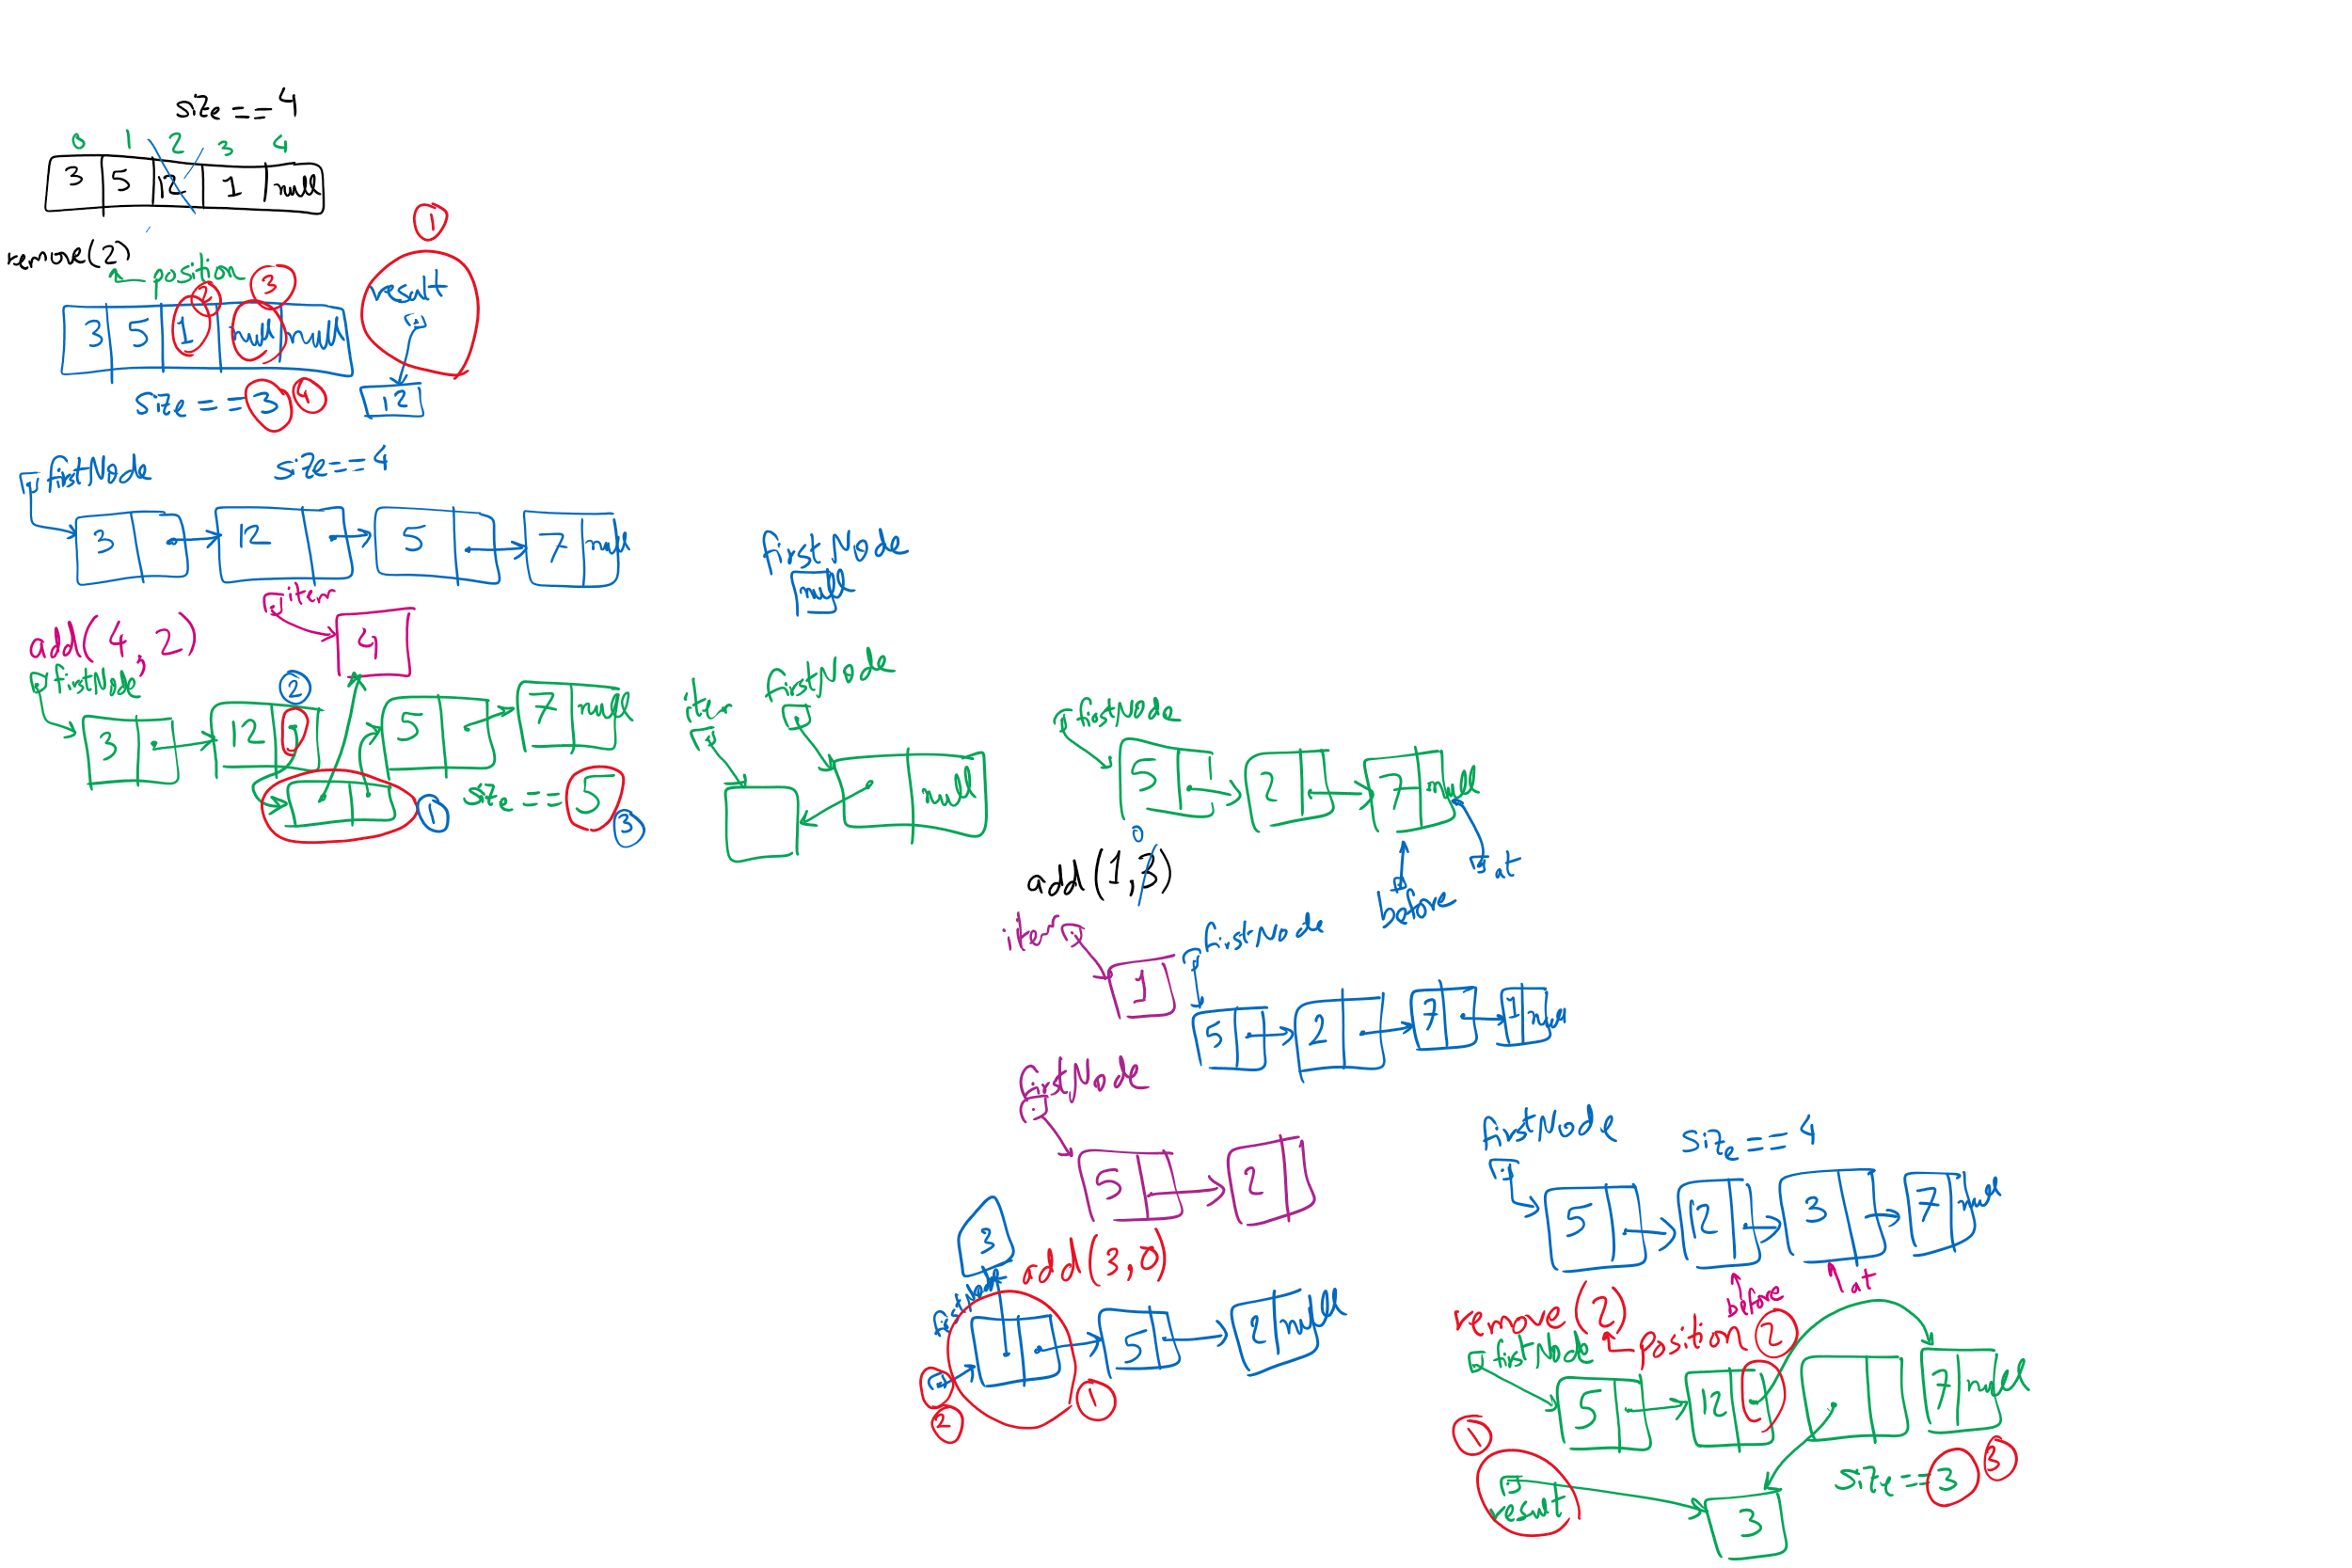 size == 4
0 1 2 3 4
3 5 12 1 null
remove(2)
position
1
2 3
3 5 1 null null
result
size == 3 4
12
firstNode size == 4
3 12 5 7 null
item
add(4, 2)
4
firstNode
2
3 12 5 7 null
1
size == 5
3
firstNode
null
item firstNode
null
firstNode
5 2 7 null
0
add(1, 3)
before at
item
1
firstNode
5 2 7 1 null
firstNode
5 2
3
add(3, 0)
firstNode
5 2 null
1
2
firstNode size == 4
5 12 3 7 null
before at
remove(2)
position 2
firstNode
5 12 7 null
1
result
3
size == 3 3